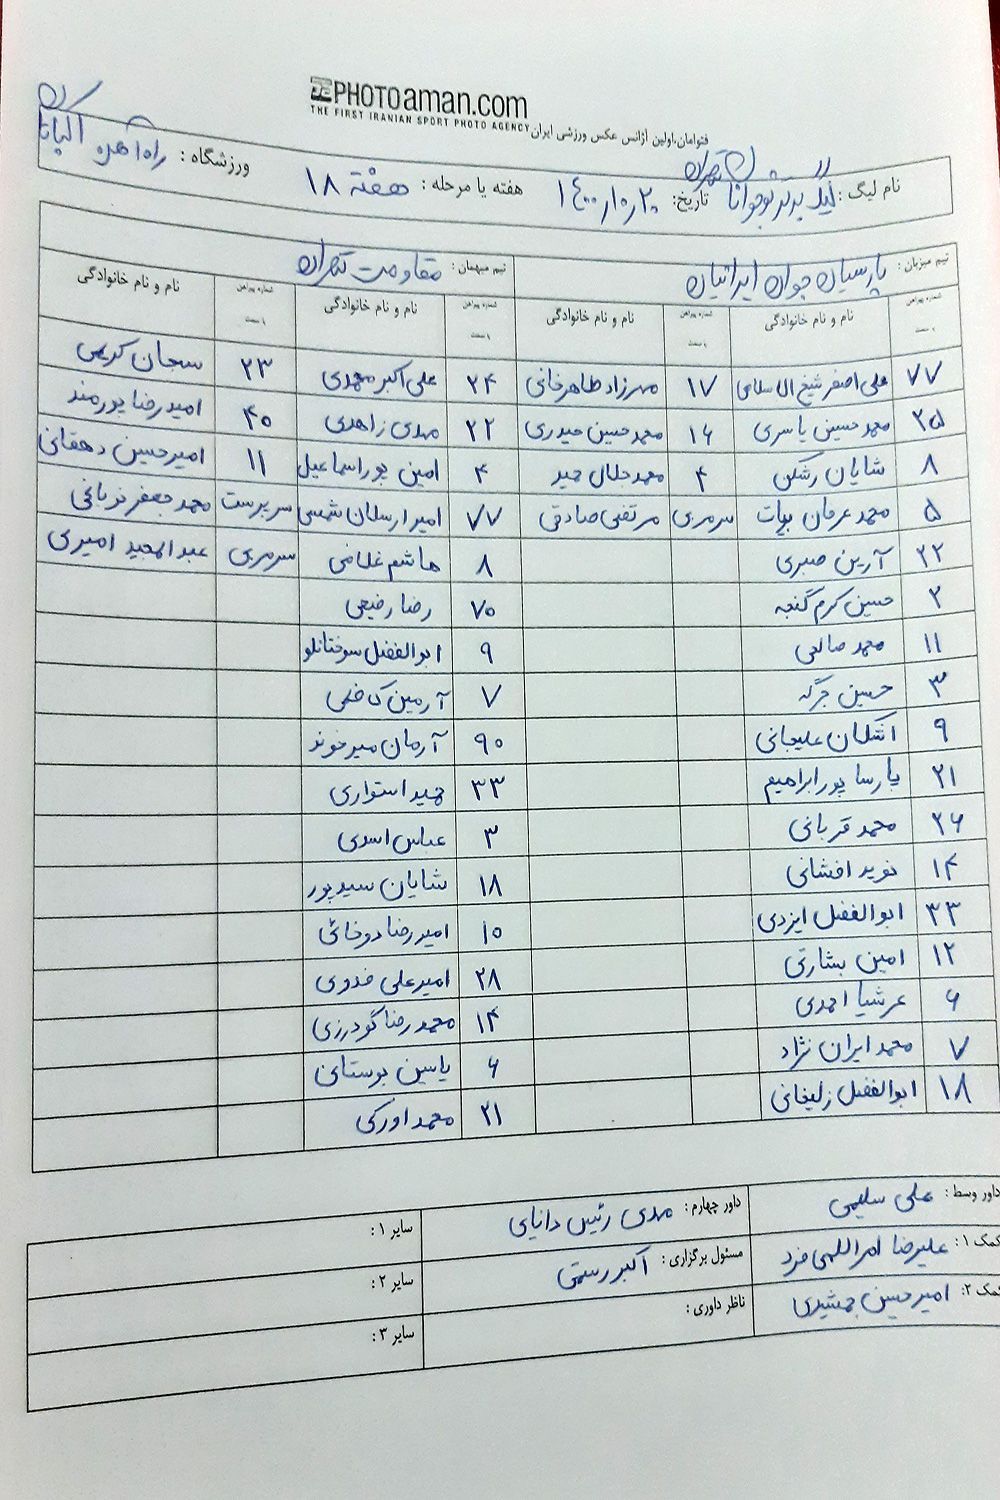 PHOTOaman.com
THE FIRST IRANIAN SPORT PHOTO AGENCY
فتوامان،اولین آژانس عکس ورزشی ایران
نام لیگ: لیگ برتر نوجوانان تهران تاریخ: ۱۴۰۰/۱۰/۲۰ هفته یا مرحله: هفته ۱۸ ورزشگاه: راه آهن اکباتان
تیم میزبان: پارسیان جوان ایرانیان تیم میهمان: مقاومت تهران
شماره پیراهن یا سمت نام و نام خانوادگی شماره پیراهن یا سمت نام و نام خانوادگی شماره پیراهن یا سمت نام و نام خانوادگی شماره پیراهن یا سمت نام و نام خانوادگی
۷۷ علی اصغر شیخ الاسلامی ۱۷ مهرزاد طاهرخانی ۲۴ علی اکبر محمدی ۲۳ سبحان کریمی
۲۵ محمد حسین یاسری ۱۶ محمد حسین حیدری ۲۲ مهدی زاهدی ۴۰ امیررضا پورمند
۸ شایان رشکن ۴ محمد جلال ۴ امین پوراسماعیل ۱۱ امیرحسین دهقانی
۵ محمد عرفان بیات سرمربی مرتضی صادقی ۷۷ امیرارسلان شمسی سرپرست محمد جعفر
۲۲ آرین صبری ۸ هاشم غلامی سرمربی عبدالمجید امیری
۲ حسین کرم گنجه ۷۰ رضا رفیعی
۱۱ محمد صالحی ۹ ابوالفضل سوختانلو
۳ حسین جرگه ۷ آرمین کاظمی
۹ اشکان علیجانی ۹۰ آرمان میرخوند
۲۱ پارسا پورابراهیم ۳۳ حمید استواری
۲۶ محمد قربانی ۳ عباس اسدی
۱۴ نوید افشانی ۱۸ شایان سیدپور
۳۳ ابوالفضل ایزدی ۱۰ امیررضا دوخائی
۱۲ امین بشارتی ۲۸ امیرعلی فدوی
۶ عرشیا احمدی ۱۴ محمدرضا گودرزی
۷ محمد ایران نژاد ۶ یاسین بوستانی
۱۸ ابوالفضل زلیخانی ۲۱ محمد اورکی
داور وسط: علی سلیمی داور چهارم: مهدی رئیس دانایی سایر ۱:
کمک ۱: علیرضا امراللهی فرد مسئول برگزاری: اکبر رستمی سایر ۲:
کمک ۲: امیرحسین جمشیدی ناظر داوری: سایر ۳: